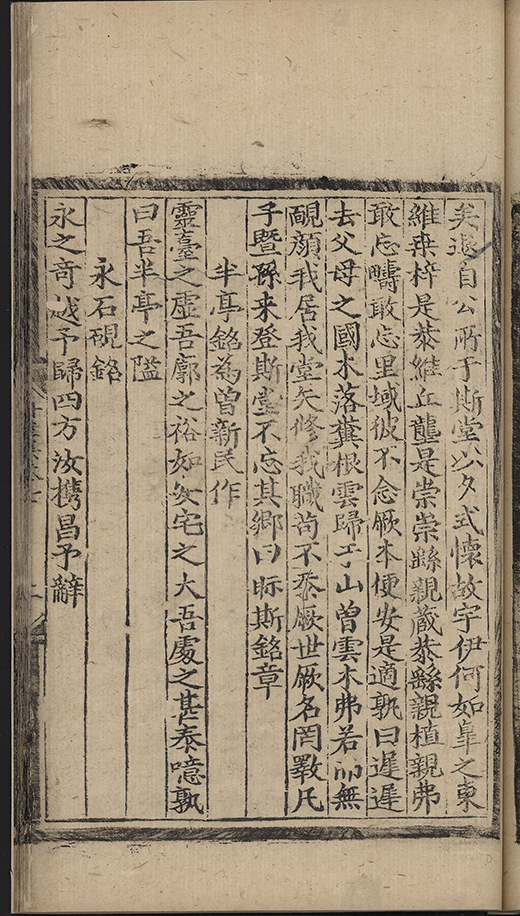 矣退自公所于斯堂公夕式懷故宇伊何如臯之東
維桒梓是恭維丘壟是崇崇繇親藏恭繇親植親弗
敢忘疇敢忘里域彼不念厥本便安是適孰曰遲遲
去父母之國木落糞根雲歸于山曽雲木弗若而無
靦顔我居我堂矢修我職苟不忝厥世厥名罔斁凡
子暨孫来登斯堂不忘其鄉曰眎斯銘章
半亭銘為曽新民作
靈臺之虛吾廓之裕如安宅之大吾處之甚泰噫孰
曰吾半亭之隘
永石硯銘
永之竒越予歸四方汝攜昌予辭